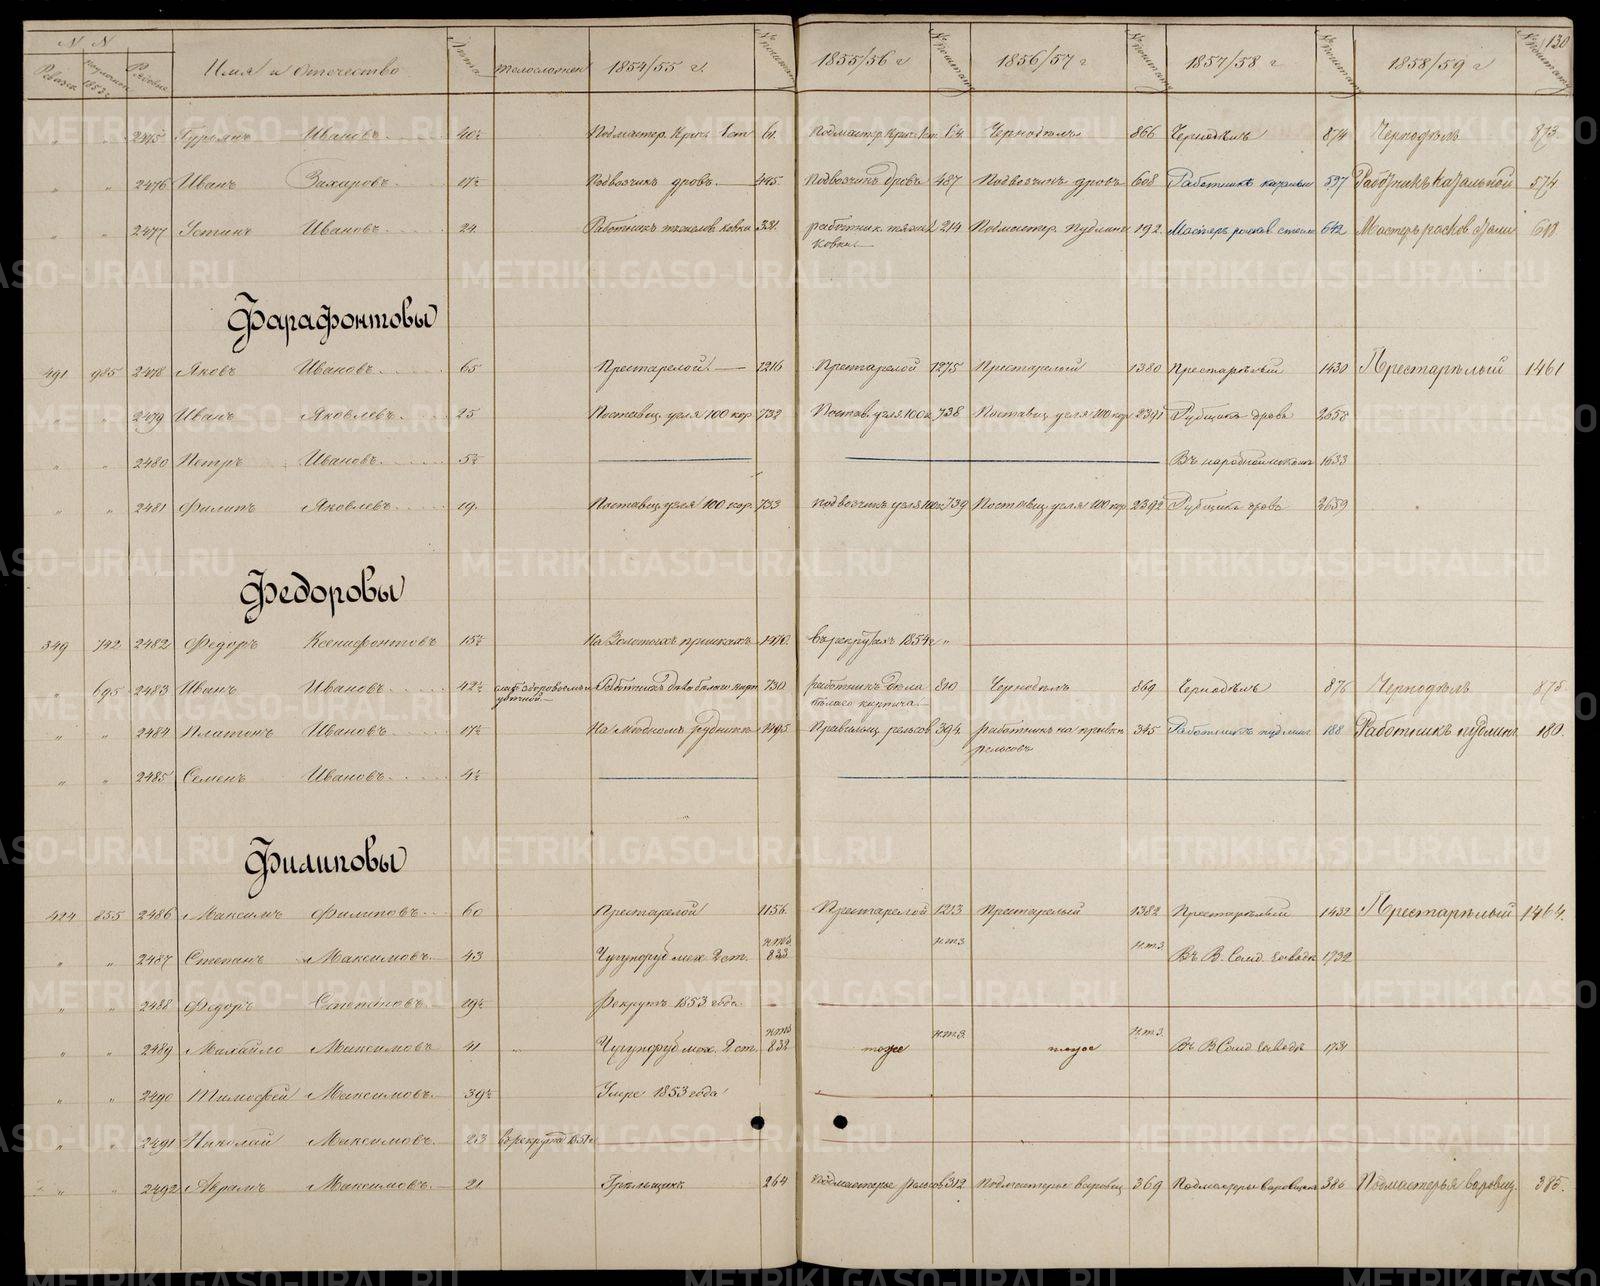 N N
Ревизк. 1853 г. Рядовые Имя и Отечество Лета телосложен 1854/55 г. № по штату 1855/56 г № по штату 1856/57 г № по штату 1857/58 г № по штату 1858/59 г № по штату 130
" " 2475 Гурьянъ Ивановъ 40½ Подмастер. Крич. 1 ст 61. Подмастер. Крич. Чернодѣлъ 866 Чернодѣлъ 874 Чернодѣлъ 873
" " 2476 Иванъ Захаровъ 17½ Подвозчикъ дровъ 445. Подвозчикъ дровъ 487 Подвозчикъ дровъ 608 Работникъ 597 Работникъ 574
" " 2477 Устинъ Ивановъ 24 Работникъ ковки 331. работник 214 Подмастер. Пудлинг 192 Мастеръ 642 Мастеръ 618
ковки
Фарафонтовы
491 985 2478 Яковъ Ивановъ 65 Престарелой 1216 Престарелой 1275 Престарелый 1380 Престарѣлый 1430 Престарѣлый 1461
" " 2479 Иванъ Яковлевъ 25 Поставщ. угля 100 кор. 732 Постав. угля 100 к 738 Поставщ. угля 100 кор 2391 Рубщикъ дровъ 2658
" " 2480 Петръ Ивановъ 5½ Въ народной 1633
" " 2481 Филипъ Яковлевъ 19. Поставщ. угля 100 кор. 733 подвозчик угля 100 к 739 Поставщ. угля 100 кор 2392 Рубщикъ дровъ 2659
Федоровы
349 742 2482 Федоръ Ксенифонтовъ 15½ На Золотыхъ приискахъ 1470. въ рекрутахъ 1854 г "
" 695 2483 Иванъ Ивановъ 42½ слабъ здоровьемъ и Работникъ дѣла бѣлаго кирп 730 работникъ дела 810 Чернодѣлъ 869 Чернодѣлъ 876 Чернодѣлъ 875
бѣлаго кирпича
" " 2484 Платонъ Ивановъ 17½ На Мѣдномъ Рудникѣ 1495 Правильщ. рельсов 394 работникъ на правкѣ 345 Работникъ пудлинг. 188 Работникъ пудлинг. 180.
рельсовъ
" " 2485 Семенъ Ивановъ 4½
Филиповы
424 855 2486 Максимъ Филиповъ 60 Престарелой 1156. Престарелой 1213 Престарелый 1382 Престарѣлый 1432 Престарѣлый 1464.
н.т.з. н.т.з н.т.з.
" " 2487 Степанъ Максимовъ 43 Чугуноруб мех 2 ст. 833 Въ В. Салд. заводѣ 1732
" " 2488 Федоръ Степановъ 19½ Рекрутъ 1853 года.
н.т.з н.т.з. н.т.з.
" " 2489 Михайло Максимовъ 41 " Чугуноруб мех. 2 ст. 832 тоже тоже Въ В Салд заводѣ 1731
" " 2490 Тимофей Максимовъ 39½ Умре 1853 года
" " 2491 Николай Максимовъ 23 в рекрута 1851 г
" " 2492 Аврамъ Максимовъ 21 Грѣльщикъ 264 Подмастерье рельсов 312 Подмастерье 369 Подмастерье 386 Подмастерья 385.
METRIKI.GASO-URAL.RU